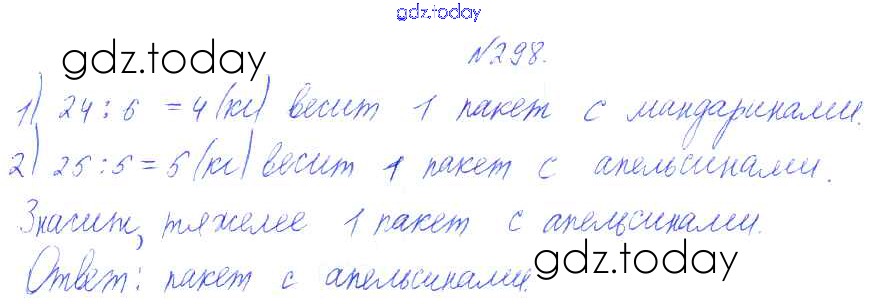 gdz.today
№298.
gdz.today
1) 24:6 = 4 (кг) весит 1 пакет с мандаринами.
2) 25:5 = 5 (кг) весит 1 пакет с апельсинами.
Значит, тяжелее 1 пакет с апельсинами.
Ответ: пакет с апельсинами.
gdz.today